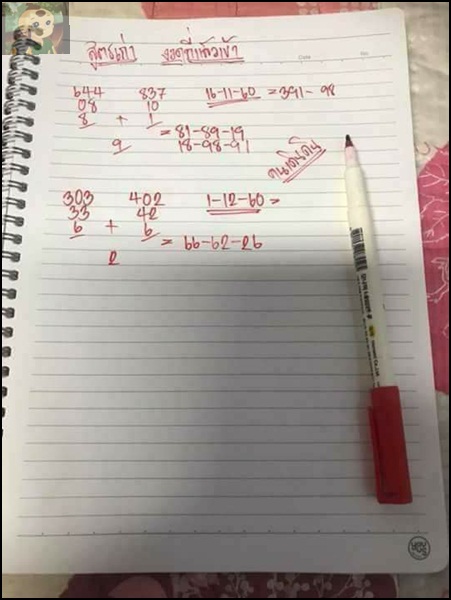 สูตรเก่า งวดที่แล้วเข้า
Date No.
644 837 16-11-60 = 391-98
08 10
8 + 1
9 = 81-89-19
18-98-91
คนเดินดิน
303 402 1-12-60 =
33 42
6 + 6
2 = 66-62-26